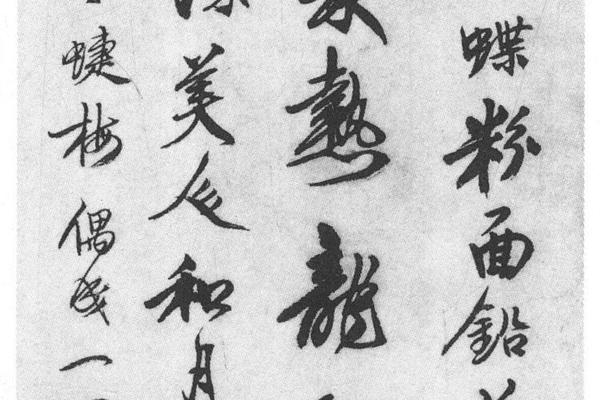 蝶粉面鉛
熱龍
美人和月
蜨梅偶成一